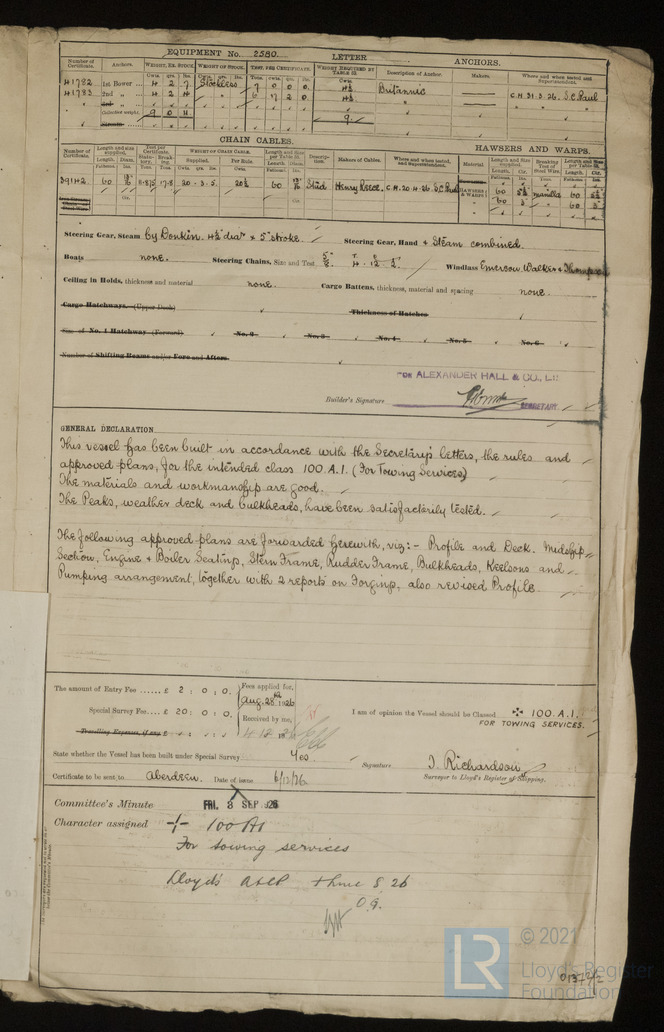 EQUIPMENT No. 2580. LETTER ANCHORS.
Number of Certificate. Anchors. WEIGHT, EX. STOCK. WEIGHT OF STOCK. TEST, PER CERTIFICATE. WEIGHT REQUIRED BY TABLE 22. Description of Anchor. Makers. Where and when tested and Superintendent.
41782 1st Bower 4 2 7 Stockless 7 0 0 0 4½ Britannic
41783 2nd " 4 2 4 6 17 2 0 4½ " C.H. 31.3.26. S.C. Paul
Collective weight 9 0 11 9
CHAIN CABLES. HAWSERS AND WARPS.
Number of Certificate. Length and size supplied. Test per Certificate. WEIGHT OF CHAIN CABLE. Length and size per Table 22. Description. Makers of Cables. Where and when tested, and Superintendent. Material Length and Size supplied. Breaking Test of Steel Wire. Length and Size per Table 22.
Supplied. Per Rule.
39142 60 20.3.5. 20½ 60 Stud Henry Reece. C.H. 20.4.26. S.C. Paul HAWSERS & WARPS 60 5½" manilla 60 5½"
60 3" " 60 3"
Steering Gear, Steam by Donkin. 4½ diar × 5" stroke. Steering Gear, Hand & Steam combined.
Boats none. Steering Chains, Size and Test Windlass Emerson Walker & Thompson
Ceiling in Holds, thickness and material none. Cargo Battens, thickness, material and spacing none.
Cargo Hatchways. (Upper Deck) Thickness of Hatches
Size of No. 1 Hatchway (Forward) No. 2 No. 3 No. 4 No. 5 No. 6
Number of Shifting Beams and/or Fore and Afters
FOR ALEXANDER HALL & CO., LD.
Builder's Signature SECRETARY.
GENERAL DECLARATION
This vessel has been built in accordance with the Secretary's letters, the rules and
approved plans, for the intended class 100.A.1. (For Towing Services)
The materials and workmanship are good.
The Peaks, weather deck and bulkheads, have been satisfactorily tested.
The following approved plans are forwarded herewith, viz:- Profile and Deck. Midship
Section, Engine & Boiler Seating, Stern Frame, Rudder Frame, Bulkheads, Keelsons and
Pumping arrangement, together with 2 reports on Forging, also revised Profile.
The amount of Entry Fee ...... £ 2 : 0 : 0. Fees applied for,
Aug. 28th 1926
Special Survey Fee .... £ 20 : 0 : 0. Received by me,
Travelling Expenses, if any £
I am of opinion the Vessel should be Classed ✠ 100.A.1.
FOR TOWING SERVICES.
State whether the Vessel has been built under Special Survey Yes.
Signature J. Richardson
Surveyor to Lloyd's Register of Shipping.
Certificate to be sent to Aberdeen. Date of issue 6/12/26
Committee's Minute FRI. 3 SEP 1926
Character assigned 100 A1
For towing services
Lloyd's A&CP + hmc 8 26
O.G.
LR © 2021
Lloyd's Register
Foundation